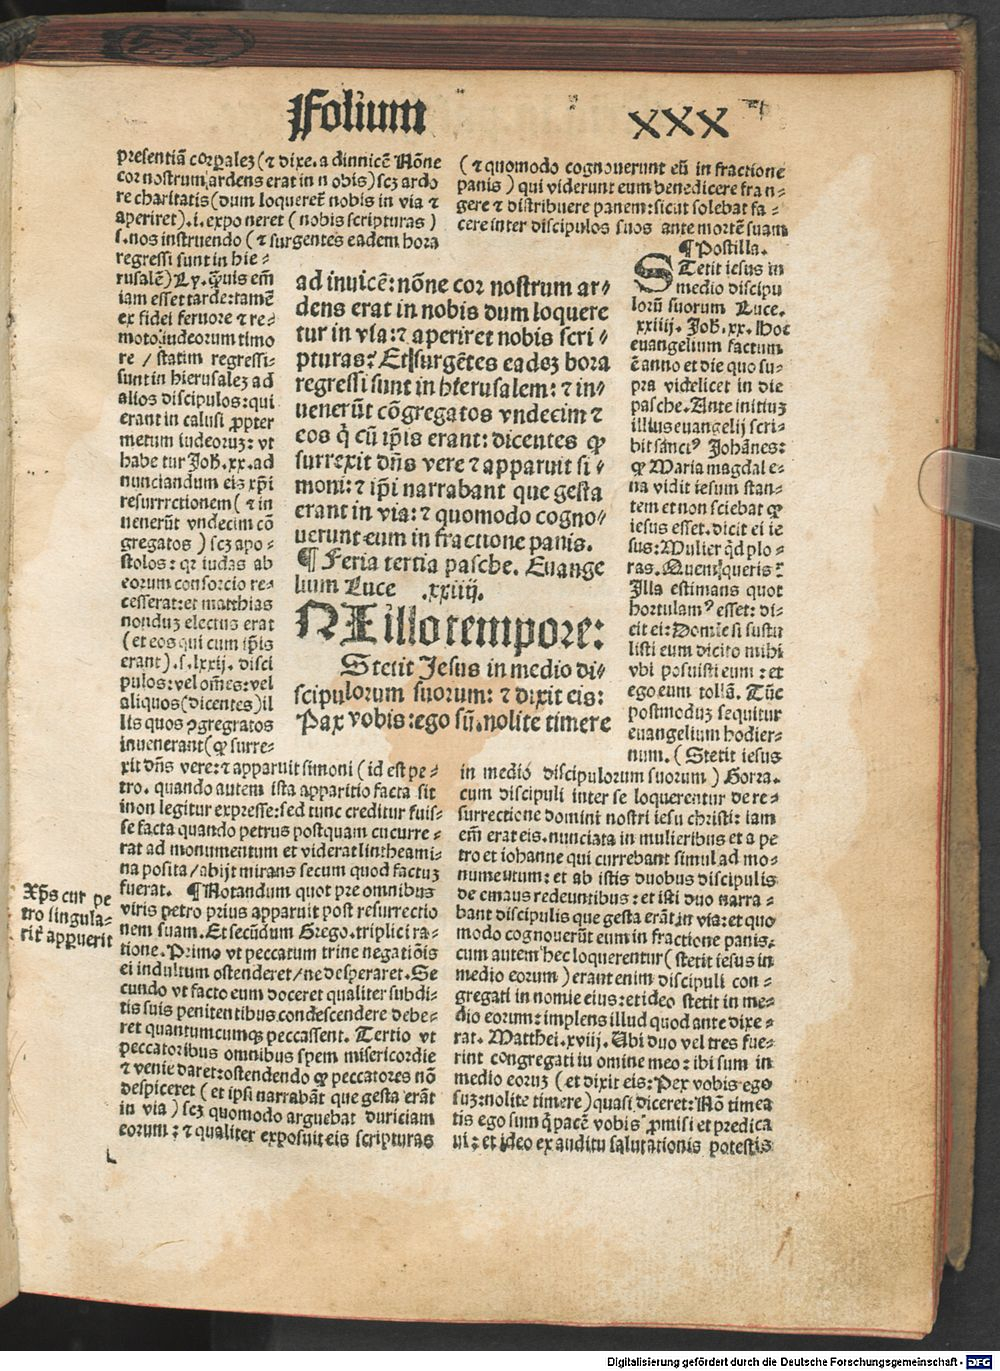 Folium XXX
presentiã corpalez (⁊ dixe. adinnicē Nõne
cor nostrum ardens erat in nobis) scz ardo
re charitatis (dum loquereť nobis in via ⁊
aperiret) .i. exponeret (nobis scripturas)
s. nos instruendo (⁊ surgentes eadem hora
regressi sunt in hie⸗
rusalē) Ly. q̃uis em̃
iam esset tarde: tamē
ex fidei feruore ⁊ re⸗
moto iudeorum timo
re / statim regressi⸗
sunt in hierusalez ad
alios discipulos: qui
erant in calusi ꝓpter
metum iudeoruz: vt
habetur Joh. xx. ad
nunciandum eis xp̄i
resurrrctionem (⁊ in
uenerūt vndecim cõ
gregatos) scz apo⸗
stolos: qr iudas ab
eorum consorcio re⸗
cesserat: et matthias
nonduz electus erat
(et eos qui cum ip̄is
erant) .s. lxxij. disci
pulos: vel om̄es: vel
aliquos (dicentes) il
lis quos ꝯgregatos
inuenerant (ꝙ surre⸗
xit dn̄s vere: ⁊ apparuit simoni (id est pe⸗
tro. quando autem ista apparitio facta sit
inon legitur expresse: sed tunc creditur fuis⸗
se facta quando petrus postquam cucurre⸗
rat ad monumentum et viderat lintheami⸗
na posita / abijt mirans secum quod factuz
fuerat. ¶ Notandum quot pre omnibus
viris petro prius apparuit post resurrectio
nem suam. Et secũdum Grego. triplici ra⸗
tione. Primo vt peccatum trine negatiõis
ei indultum ostenderet / ne desperaret. Se
cundo vt facto eum doceret qualiter subdi⸗
tis suis penitentibus condescendere debe⸗
ret quantumcumqꝫ peccassent. Tertio vt
peccatoribus omnibus spem misericordie
⁊ venie daret: ostendendo ꝙ peccatores nõ
despiceret (et ipsi narrabãt que gesta erãt
in via) scz quomodo arguebat duriciam
eorum: ⁊ qualiter exposuit eis scripturas
Xp̄s cur pe
tro singula⸗
rit̃ apꝑuerit
ad inuicē: nõne cor nostrum ar⸗
dens erat in nobis dum loquere
tur in via: ⁊ aperiret nobis scri⸗
pturas? Et surgētes eadez hora
regressi sunt in hierusalem: ⁊ in⸗
uenerūt cõgregatos vndecim ⁊
eos q̇ cū ip̄is erant: dicentes ꝙ
surrexit dn̄s vere ⁊ apparuit si⸗
moni: ⁊ ip̄i narrabant que gesta
erant in via: ⁊ quomodo cogno⸗
uerunt eum in fractione panis.
¶ Feria tertia pasche. Euange
lium Luce .xxiiij.
IN illo tempore:
Stetit Jesus in medio di⸗
scipulorum suorum: ⁊ dixit eis:
Pax vobis: ego sū. nolite timere
(⁊ quomodo cognouerunt eū in fractione
panis) qui viderunt eum benedicere fran⸗
gere ⁊ distribuere panem: sicut solebat fa⸗
cere inter discipulos suos ante mortē suam
¶ Postilla.
STetit iesus in
medio discipu
lorū suorum Luce.
xxiiij. Joh. xx. Hoc
euangelium factum
ē anno et die quo su⸗
pra videlicet in die
pasche. Ante initiuz
illius euangelij scri⸗
bit sãnctꝰ Johãnes:
ꝙ Maria magdale⸗
na vidit iesum stan⸗
tem et non sciebat ꝙ
iesus esset. dicit ei ie
sus: Mulier q̇d plo⸗
ras. Quem queris?
Illa estimans quot
hortulanꝰ esset: di⸗
cit ei: Domie si sustu
listi eum dicito mihi
vbi posuisti eum: et
ego eum tollã. Tūc
postmoduz sequitur
euangelium hodier⸗
num. (Stetit iesus
in medio discipulorum suorum) Gorra.
cum discipuli inter se loquerentur de re⸗
surrectione domini nostri iesu christi: iam
em̃ erat eis. nunciata in mulieribus et a pe
tro et iohanne qui currebant simul ad mo⸗
numentum: et ab istis duobus discipulis
de emaus redeuntibus: et isti duo narra⸗
bant discipulis que gesta erãt in via: et quo
modo cognouerūt eum in fractione panis.
cum autem hec loquerentur (stetit iesus in
medio eorum) erant enim discipuli con⸗
gregati in nomie eius: et ideo stetit in me⸗
dio eorum: implens illud quod ante dixe⸗
rat. Matthei. xviij. Ubi duo vel tres fue⸗
rint congregati iu omine meo: ibi sum in
medio eoruz (et dixit eis: Pex vobis ego
suz: nolite timere) quasi diceret: Nõ timea
tis ego sum q̇ pacē vobis ꝓmisi et predica
ui: et ideo ex auditu salutationis potestis
Digitalisierung gefördert durch die Deutsche Forschungsgemeinschaft - DFG